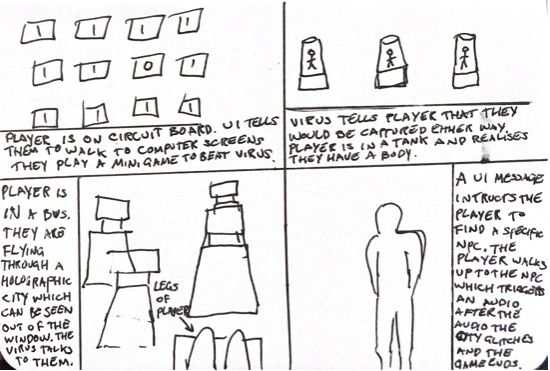 1 1 1 1
1 1 0 1
1 1 1 1
PLAYER IS ON CIRCUIT BOARD. UI TELLS
THEM TO WALK TO COMPUTER SCREENS
THEY PLAY A MINIGAME TO BEAT VIRUS.
VIRUS TELLS PLAYER THAT THEY
WOULD BE CAPTURED EITHER WAY
PLAYER IS IN A TANK AND REALISES
THEY HAVE A BODY.
PLAYER IS
IN A BUS.
THEY ARE
FLYING
THROUGH A
HOLOGRAPHIC
CITY WHICH
CAN BE SEEN
OUT OF THE
WINDOW. THE
VIRUS TALKS
TO THEM.
LEGS
OF
PLAYER
A UI MESSAGE
INTRUCTS THE
PLAYER TO
FIND A SPECIFIC
NPC. THE
PLAYER WALKS
UP TO THE NPC
WHICH TRIGGERS
AN AUDIO
AFTER THE
AUDIO THE
CITY GLITCHES
AND THE
GAME ENDS.